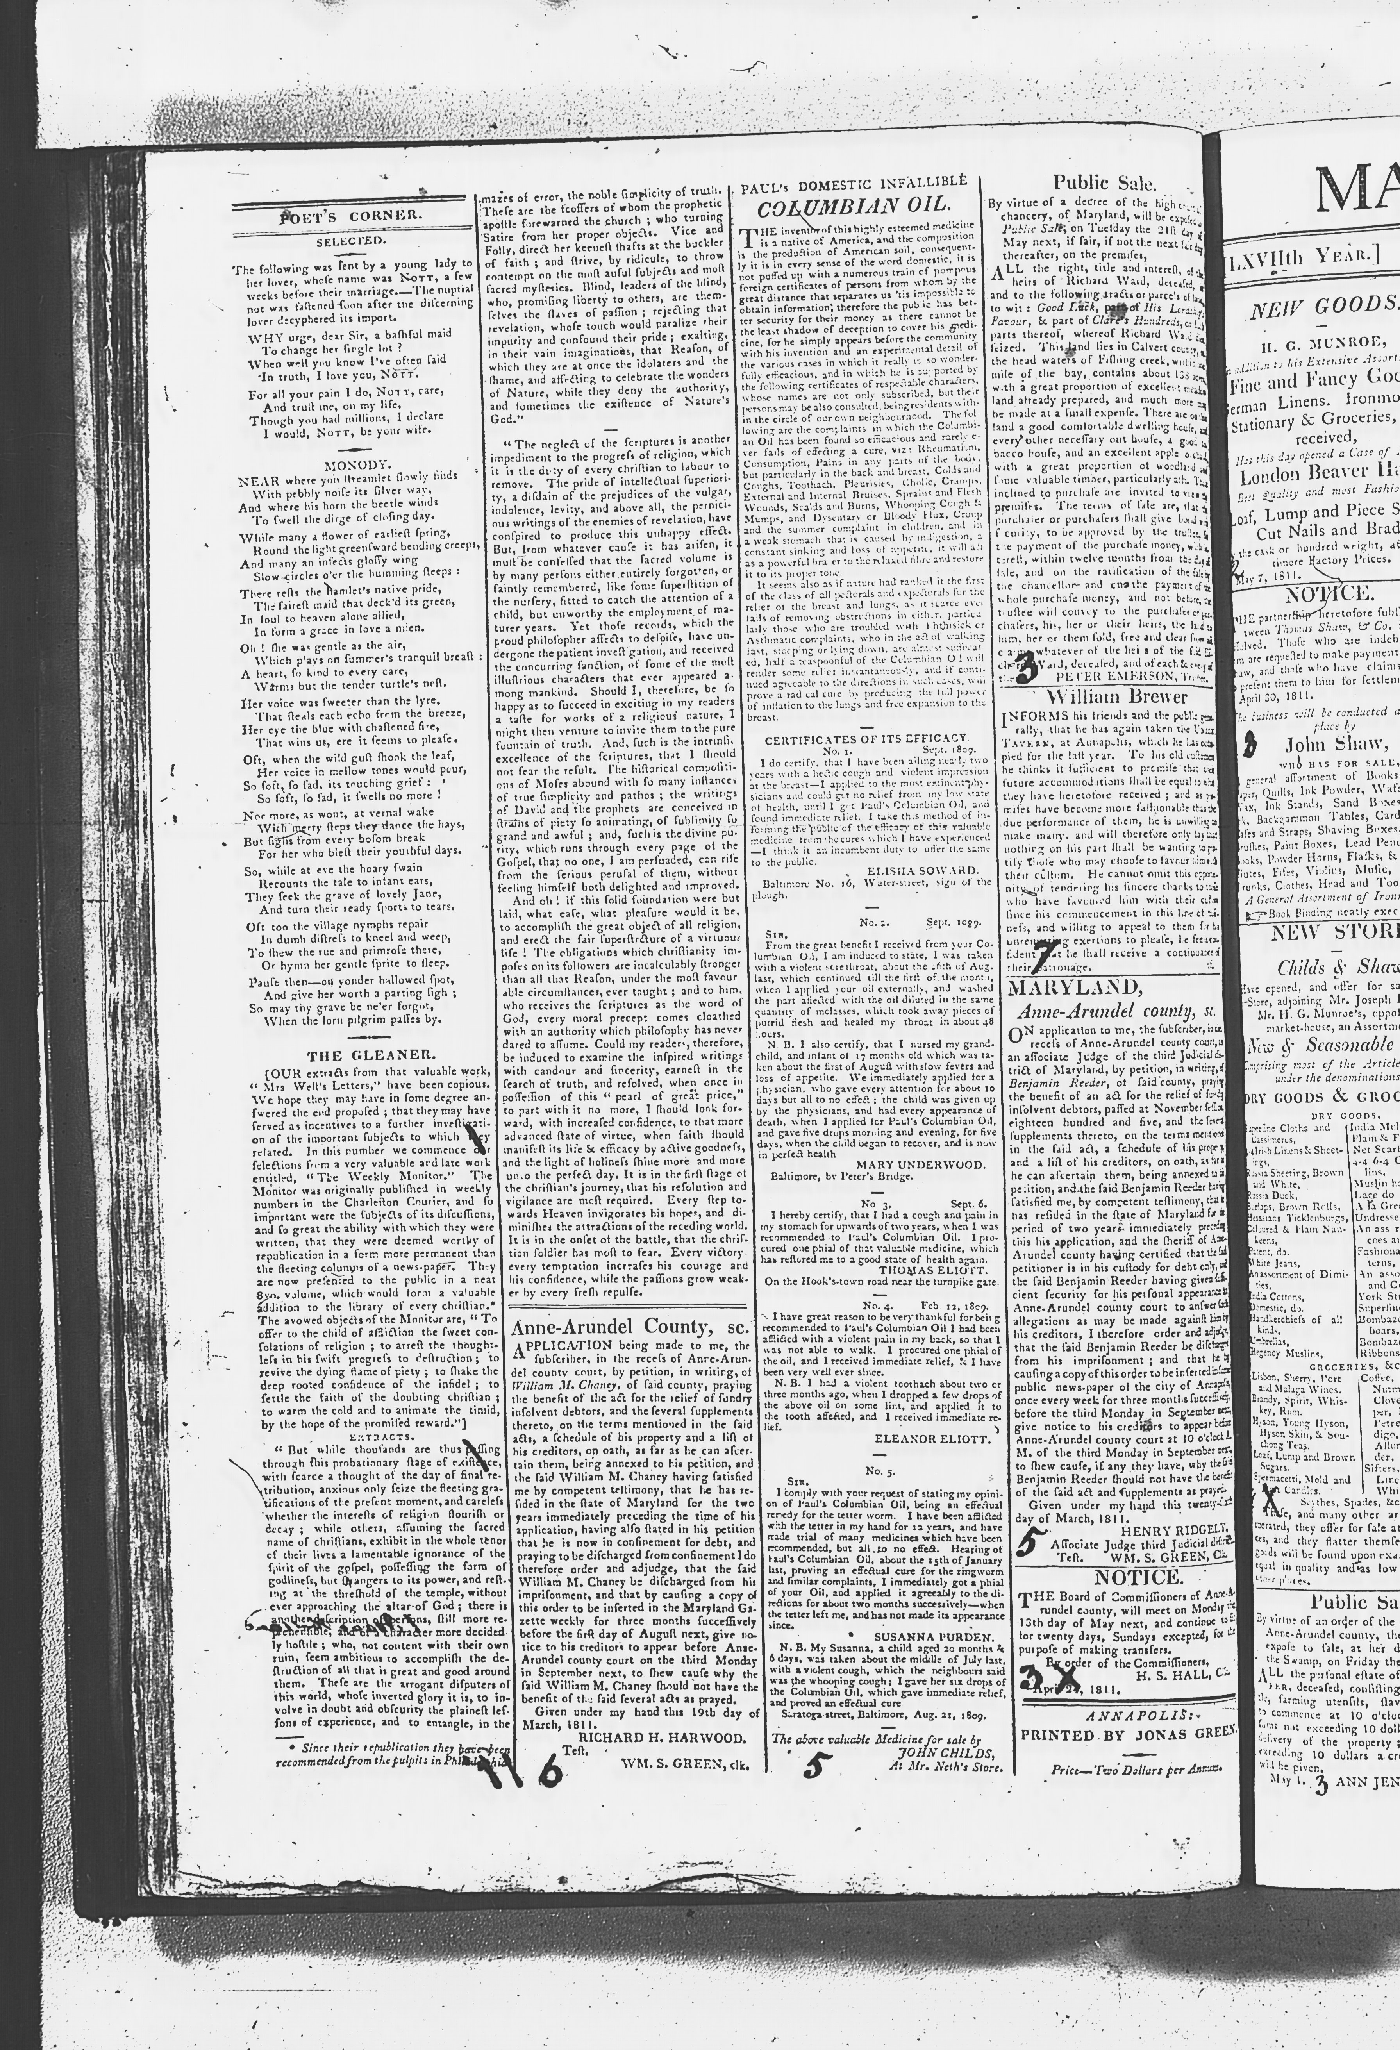 POET'S CORNER.
SELECTED.
The following was sent by a young lady to
her lover, whose name was NOTT, a few
weeks before their marriage.—The nuptial
not was fastened soon after the discerning
lover decyphered its import.
WHY urge, dear Sir, a bashful maid
To change her single lot?
When well you know I've often said
In truth, I love you, NOTT.
For all your pain I do, NOTT, care,
And trust me, on my life,
Though you had millions, I declare
I would, NOTT, be your wife.
MONODY.
NEAR where yon streamlet slowly finds
With pebbly noise its silver way,
And where his horn the beetle winds
To swell the dirge of closing day.
While many a flower of earliest spring,
Round the light greensward bending creeps,
And many an insects glossy wing
Slow circles o'er the humming steeps:
There rests the hamlet's native pride,
The fairest maid that deck'd its green,
In soul to heaven alone allied,
In form a grace in love a mien.
Oh! she was gentle as the air,
Which plays on summer's tranquil breast:
A heart, so kind to every care,
Warms but the tender turtle's nest.
Her voice was sweeter than the lyre.
That steals each echo from the breeze,
Her eye the blue with chastened fire,
That wins us, ere it seems to please.
Oft, when the wild gust shook the leaf,
Her voice in mellow tones would pour,
So soft, so sad, its touching grief:
So soft, so sad, it swells no more!
Nor more, as wont, at vernal wake
With merry steps they dance the hays,
But sighs from every bosom break
For her who blest their youthful days.
So, while at eve the hoary swain
Recounts the tale to infant ears,
They seek the grave of lovely Jane,
And turn their ready sports to tears.
Oft too the village nymphs repair
In dumb distress to kneel and weep,
To shew the rue and primrose there,
Or hymn her gentle sprite to sleep.
Pause then—on yonder hallowed spot,
And give her worth a parting sigh;
So may thy grave be ne'er forgot,
When the lorn pilgrim passes by.
THE GLEANER.
[OUR extracts from that valuable work,
"Mrs West's Letters," have been copious.
We hope they may have in some degree an-
swered the end proposed; that they may have
served as incentives to a further investigati-
on of the important subjects to which they
related. In this number we commence our
selections from a very valuable and late work
entitled, "The Weekly Monitor." The
Monitor was originally published in weekly
numbers in the Charleston Courier, and so
important were the subjects of its discussions,
and so great the ability with which they were
written, that they were deemed worthy of
republication in a form more permanent than
the fleeting columns of a news-paper. They
are now presented to the public in a neat
8vo. volume, which would form a valuable
addition to the library of every christian.*
The avowed objects of the Monitor are, "To
offer to the child of affliction the sweet con-
solations of religion; to arrest the thought-
less in his swift progress to destruction; to
revive the dying flame of piety; to shake the
deep rooted confidence of the infidel; to
settle the faith of the doubting christian;
to warm the cold and to animate the timid,
by the hope of the promised reward."]
EXTRACTS.
"But while thousands are thus passing
through this probationary stage of existence,
with scarce a thought of the day of final re-
tribution, anxious only seize the fleeting gra-
tifications of the present moment, and careless
whether the interests of religion flourish or
decay; while others, assuming the sacred
name of christians, exhibit in the whole tenor
of their lives a lamentable ignorance of the
spirit of the gospel, possessing the form of
godliness, but strangers to its power, and rest-
ing at the threshold of the temple, without
ever approaching the altar of God; there is
another description of persons, still more re-
prehensible, and of a character more decided-
ly hostile; who, not content with their own
ruin, seem ambitious to accomplish the de-
struction of all that is great and good around
them. These are the arrogant disputers of
this world, whose inverted glory it is, to in-
volve in doubt and obscurity the plainest les-
sons of experience, and to entangle, in the
* Since their republication they have been
recommended from the pulpits in Philadelphia
mazes of error, the noble simplicity of truth.
These are the scoffers of whom the prophetic
apostle forewarned the church; who turning
Satire from her proper objects. Vice and
Folly, direct her keenest shafts at the buckler
of faith; and strive, by ridicule, to throw
contempt on the most awful subjects and most
sacred mysteries. Blind, leaders of the blind,
who, promising liberty to others, are them-
selves the slaves of passion; rejecting that
revelation, whose touch would paralize their
impurity and confound their pride; exalting,
in their vain imaginations, that Reason, of
which they are at once the idolaters and the
shame, and affecting to celebrate the wonders
of Nature, while they deny the authority,
and sometimes the existence of Nature's
God."
"The neglect of the scriptures is another
impediment to the progress of religion, which
it is the duty of every christian to labour to
remove. The pride of intellectual superiori-
ty, a disdain of the prejudices of the vulgar,
indolence, levity, and above all, the pernici-
ous writings of the enemies of revelation, have
conspired to produce this unhappy effect.
But, from whatever cause it has arisen, it
must be confessed that the sacred volume is
by many persons either entirely forgotten, or
faintly remembered, like some superstition of
the nursery, fitted to catch the attention of a
child, but unworthy the employment of ma-
turer years. Yet those records, which the
proud philosopher affects to despise, have un-
dergone the patient investigation, and received
the concurring sanction, of some of the most
illustrious characters that ever appeared a-
mong mankind. Should I, therefore, be so
happy as to succeed in exciting in my readers
a taste for works of a religious nature, I
might then venture to invite them to the pure
fountain of truth. And, such is the intrinsic
excellence of the scriptures, that I should
not fear the result. The historical compositi-
ons of Moses abound with so many instances
of true simplicity and pathos; the writings
of David and the prophets are conceived in
strains of piety so animating, of sublimity so
grand and awful; and, such is the divine pu-
rity, which runs through every page of the
Gospel, that no one, I am persuaded, can rise
from the serious perusal of them, without
feeling himself both delighted and improved.
And oh! if this solid foundation were but
laid, what ease, what pleasure would it be,
to accomplish the great object of all religion,
and erect the fair superstructure of a virtuous
life! The obligations which christianity im-
poses on its followers are incalculably stronger
than all that Reason, under the most favour-
able circumstances, ever taught; and to him,
who receives the scriptures as the word of
God, every moral precept comes cloathed
with an authority which philosophy has never
dared to assume. Could my readers, therefore,
be induced to examine the inspired writings
with candour and sincerity, earnest in the
search of truth, and resolved, when once in
possession of this "pearl of great price,"
to part with it no more, I should look for-
ward, with increased confidence, to that more
advanced state of virtue, when faith should
manifest its life & efficacy by active goodness,
and the light of holiness shine more and more
unto the perfect day. It is in the first stage of
the christian's journey, that his resolution and
vigilance are most required. Every step to-
wards Heaven invigorates his hopes, and di-
minishes the attractions of the receding world.
It is in the onset of the battle, that the chris-
tian soldier has most to fear. Every victory
every temptation increases his courage and
his confidence, while the passions grow weak-
er by every fresh repulse.
Anne-Arundel County, sc.
APPLICATION being made to me, the
subscriber, in the recess of Anne-Arun-
del county court, by petition, in writing, of
William M. Chaney, of said county, praying
the benefit of the act for the relief of sundry
insolvent debtors, and the several supplements
thereto, on the terms mentioned in the said
acts, a schedule of his property and a list of
his creditors, on oath, as far as he can ascer-
tain them, being annexed to his petition, and
the said William M. Chaney having satisfied
me by competent testimony, that he has re-
sided in the state of Maryland for the two
years immediately preceding the time of his
application, having also stated in his petition
that he is now in confinement for debt, and
praying to be discharged from confinement I do
therefore order and adjudge, that the said
William M. Chaney be discharged from his
imprisonment, and that by causing a copy of
this order to be inserted in the Maryland Ga-
zette weekly for three months successively
before the first day of August next, give no-
tice to his creditors to appear before Anne-
Arundel county court on the third Monday
in September next, to shew cause why the
said William M. Chaney should not have the
benefit of the said several acts as prayed.
Given under my hand this 19th day of
March, 1811.
RICHARD H. HARWOOD.
Test,
WM. S. GREEN, clk.
6
PAUL's DOMESTIC INFALLIBLE
COLUMBIAN OIL.
THE inventor of this highly esteemed medicine
is a native of America, and the composition
is the production of American soil, consequent-
ly it is in every sense of the word domestic, it is
not puffed up with a numerous train of pompous
foreign certificates of persons from whom by the
great distance that separates us 'tis impossible to
obtain information; therefore the public has bet-
ter security for their money as there cannot be
the least shadow of deception to cover his medi-
cine, for he simply appears before the community
with his invention and an experimental detail of
the various cases in which it really is so wonder-
fully efficacious, and in which he is supported by
the following certificates of respectable characters,
whose names are not only subscribed, but their
persons may be also consulted, being residents with-
in the circle of our own neighbourhood. The fol-
lowing are the complaints in which the Columbi-
an Oil has been found so efficacious and rarely e-
ver fails of effecting a cure, viz: Rheumatism,
Consumption, Pains in any parts of the body,
but particularly in the back and breast, Colds and
Coughs, Toothach, Pleurisies, Cholic, Cramps,
External and Internal Bruises, Sprains and Flesh
Wounds, Scalds and Burns, Whooping Cough &
Mumps, and Dysentary or Bloody Flux, Croup
and the summer complaint in children, and in
a weak stomach that is caused by indigestion, a
constant sinking and loss of appetite, it will act
as a powerful bracer to the relaxed fibre and restore
it to its proper tone
It seems also as if nature had ranked it the first
of the class of all pectorals and expectorals for the
relief of the breast and lungs, as it scarce ever
fails of removing obstructions in either, particu-
larly those who are troubled with Phthisick or
Asthmatic complaints, who in the act of walking
fast, stooping or lying down, are almost suffocat-
ed, half a teaspoonful of the Columbian Oil will
render some relief instantaneously, and if conti-
nued agreeable to the directions in such cases, will
prove a radical cure by producing the full power
of inflation to the lungs and free expansion to the
breast.
CERTIFICATES OF ITS EFFICACY.
No. 1. Sept. 1809.
I do certify, that I have been ailing nearly two
years with a hectic cough and violent impression
at the breast—I applied to the most eminent phy-
sicians and could get no relief from my low state
of health, until I got Paul's Columbian Oil, and
found immediate relief. I take this method of in-
forming the public of the efficacy of this valuable
medicine from the cures which I have experienced
—I think it an incumbent duty to offer the same
to the public.
ELISHA SOWARD.
Baltimore No. 16, Water-street, sign of the
plough.
No. 2. Sept. 1099.
SIR,
From the great benefit I received from your Co-
lumbian Oil, I am induced to state, I was taken
with a violent sorethroat, about the 26th of Aug.
last, which continued till the first of the month,
when I applied your oil externally, and washed
the part affected with the oil diluted in the same
quantity of molasses, which took away pieces of
putrid flesh and healed my throat in about 48
hours.
N. B. I also certify, that I nursed my grand-
child, and infant of 17 months old which was ta-
ken about the first of August with slow fevers and
loss of appetite. We immediately applied for a
physician, who gave every attention for about 10
days but all to no effect; the child was given up
by the physicians, and had every appearance of
death, when I applied for Paul's Columbian Oil,
and gave five drops morning and evening, for five
days, when the child began to recover, and is now
in perfect health
MARY UNDERWOOD.
Baltimore, by Peter's Bridge.
No 3, Sept. 6.
I hereby certify, that I had a cough and pain in
my stomach for upwards of two years, when I was
recommended to Paul's Columbian Oil. I pro-
cured one phial of that valuable medicine, which
has restored me to a good state of health again.
THOMAS ELIOTT.
On the Hook's-town road near the turnpike gate
No. 4. Feb 12, 1809.
I have great reason to be very thankful for being
recommended to Paul's Columbian Oil I had been
afflicted with a violent pain in my back, so that I
was not able to walk. I procured one phial of
the oil, and I received immediate relief, & I have
been very well ever since.
N. B. I had a violent toothach about two or
three months ago, when I dropped a few drops of
the above oil on some lint, and applied it to
the tooth affected, and I received immediate re-
lief.
ELEANOR ELIOTT.
No. 5.
SIR,
I comply with your request of stating my opini-
on of Paul's Columbian Oil, being an effectual
remedy for the tetter worm. I have been afflicted
with the tetter in my hand for 12 years, and have
made trial of many medicines which have been
recommended, but all to no effect. Hearing of
Paul's Columbian Oil, about the 15th of January
last, proving an effectual cure for the ringworm
and similar complaints, I immediately got a phial
of your Oil, and applied it agreeably to the di-
rections for about two months successively—when
the tetter left me, and has not made its appearance
since.
SUSANNA PURDEN.
N. B. My Susanna, a child aged 20 months &
6 days, was taken about the middle of July last,
with a violent cough, which the neighbours said
was the whooping cough; I gave her six drops of
the Columbian Oil, which gave immediate relief,
and proved an effectual cure
Saratoga-street, Baltimore, Aug. 21, 1809.
The above valuable Medicine for sale by
JOHN CHILDS,
At Mr. Neth's Store.
5
Public Sale.
By virtue of a decree of the high court of
chancery, of Maryland, will be exposed
Public Sale, on Tuesday the 21st day of
May next, if fair, if not the next fair day
thereafter, on the premises,
ALL the right, title and interest, of the
heirs of Richard Ward, deceased, of
and to the following tracts or parcels of land,
to wit: Good Luck, part of His Lordship's
Favour, & part of Clare's Hundreds, or
parts thereof, whereof Richard Ward died
seized. This land lies in Calvert county, at
the head waters of Fishing creek, within
mile of the bay, contains about 138 acres,
with a great proportion of excellent meadow
land already prepared, and much more may
be made at a small expense. There are on the
land a good comfortable dwelling house, and
every other necessary out house, a good to-
bacco house, and an excellent apple orchard,
with a great proportion of woodland and
some valuable timber, particularly ash. Those
inclined to purchase are invited to view the
premises. The terms of sale are, that the
purchaser or purchasers shall give bond with
security, to be approved by the trustee, for
the payment of the purchase money, with in-
terest, within twelve months from the day of
sale, and on the ratification of the sale by
the chancellor and on the payment of the
whole purchase money, and not before, the
trustee will convey to the purchaser or pur-
chasers, his, her or their heirs, the land to
him, her or them sold, free and clear from all
claim whatever of the heirs of the said Rich-
ard Ward, deceased, and of each & every of
3
PETER EMERSON, Trustee.
William Brewer
INFORMS his friends and the public gene-
rally, that he has again taken the UNION
TAVERN, at Annapolis, which he has occu-
pied for the last year. To his old customers
he thinks it sufficient to premise that their
future accommodations shall be equal to what
they have heretofore received; and as pro-
mises have become more fashionable than the
due performance of them, he is unwilling to
make many, and will therefore only say that
nothing on his part shall be wanting to gra-
tify those who may choose to favour him with
their custom. He cannot omit this opportu-
nity of tendering his sincere thanks to those
who have favoured him with their custom
since his commencement in this line of busi-
ness, and willing to appeal to them for his
unremitting exertions to please, he feels con-
fident that he shall receive a continuance of
their patronage.
7
MARYLAND,
Anne-Arundel county, sc.
ON application to me, the subscriber, in the
recess of Anne-Arundel county court, as
an associate Judge of the third Judicial dis-
trict of Maryland, by petition, in writing, of
Benjamin Reeder, of said county, praying
the benefit of an act for the relief of sundry
insolvent debtors, passed at November session
eighteen hundred and five, and the several
supplements thereto, on the terms mentioned
in the said act, a schedule of his property
and a list of his creditors, on oath, as far as
he can ascertain them, being annexed to his
petition, and the said Benjamin Reeder having
satisfied me, by competent testimony, that he
has resided in the state of Maryland for the
period of two years immediately preceding
this his application, and the sheriff of Anne-
Arundel county having certified that the said
petitioner is in his custody for debt only, and
the said Benjamin Reeder having given suffi-
cient security for his personal appearance at
Anne-Arundel county court to answer such
allegations as may be made against him by
his creditors, I therefore order and adjudge,
that the said Benjamin Reeder be discharged
from his imprisonment; and that he by
causing a copy of this order to be inserted in the
public news-paper of the city of Annapolis,
once every week for three months successively
before the third Monday in September next,
give notice to his creditors to appear before
Anne-Arundel county court at 10 o'clock A.
M. of the third Monday in September next,
to shew cause, if any they have, why the said
Benjamin Reeder should not have the benefit
of the said act and supplements as prayed.
Given under my hand this twenty-first
day of March, 1811.
HENRY RIDGELY,
Associate Judge third Judicial district
Test. WM. S. GREEN, Clk.
5
NOTICE.
THE Board of Commissioners of Anne-A-
rundel county, will meet on Monday the
13th day of May next, and continue to sit
for twenty days, Sundays excepted, for the
purpose of making transfers.
By order of the Commissioners,
H. S. HALL, Clk
April 24, 1811.
3 X
ANNAPOLIS:
PRINTED BY JONAS GREEN.
Price—Two Dollars per Annum.
MA
[LXVIIth YEAR.]
NEW GOODS.
H. G. MUNROE,
addition to his Extensive
Fine and Fancy
German Linens.
Stationary & Groceries,
received,
Has this day opened a Case of
London Beaver
Best Quality and most
Loaf, Lump and Piece
Cut Nails and
the cask or hundred weight, at
timore Factory Prices.
May 7, 1811.
NOTICE.
THE partnership heretofore
tween Thomas Shaw, & Co.
solved. Those who are
are requested to make payment
Shaw, and those who have claims
present them to him for
April 30, 1811.
The business will be conducted
place by
John Shaw,
WHO HAS FOR SALE,
general assortment of Books
Quills, Ink Powder,
Wax, Ink Stands, Sand Boxes
Backgammon Tables,
and Straps, Shaving Boxes,
Brushes, Paint Boxes, Lead
Books, Powder Horns, Flasks, &
Flutes, Fifes, Violins, Music,
Trunks, Clothes, Head and
A General Assortment of
Book Binding neatly
NEW STORE
Childs & Shaw
Have opened, and offer for
Store, adjoining Mr. Joseph
Mr. H. G. Munroe's,
market-house, an
New & Seasonable
Comprising most of the
under the
DRY GOODS &
DRY GOODS,
Superfine Cloths and
Cassimeres,
Irish Linens & Sheet-
ings,
Russia Sheeting, Brown
and White,
Russia Duck,
Brown Rolls,
Hessians Ticklenburgs,
Coloured & Plain Nan-
keens,
Patent, do.
White Jeans,
An assortment of Dimi-
ties,
India Cottons,
Domestic, do.
Handkerchiefs of all
kinds,
Umbrellas,
Regency Muslins,
GROCERIES,
Lisbon, Sherry, Port
and Malaga Wines.
Brandy, Spirit, Whis-
key, Rum.
Hyson, Young Hyson,
Hyson Skin, & Sou-
chong Teas.
Loaf, Lump and Brown
Sugars.
Spermaceti, Mold and
Candles.
Coffee,
Scythes, Spades,
and many other
they offer for sale
and they flatter
goods will be found upon
in quality and as low
X
Public
By virtue of an order of the
Anne-Arundel county,
expose to sale, at her
the Swamp, on Friday the
ALL the personal estate of
deceased, consisting
farming utensils,
commence at 10 o'clock
not exceeding 10
delivery of the property;
exceeding 10 dollars a
will be given.
May 1. 3 ANN